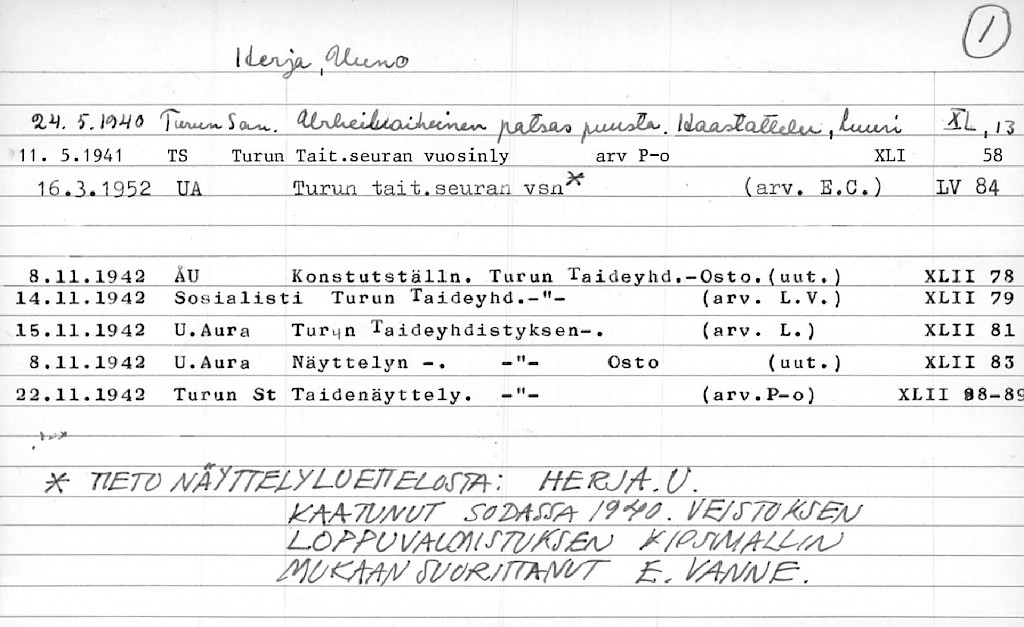 1
Herja, Uuno
24. 5.1940 Turun San. Urheiluaiheinen patsas puusta. Haastattelu, kuuri XL, 13
11. 5.1941 TS Turun Tait.seuran vuosinly arv P-o XLI 58
16.3.1952 UA Turun tait.seuran vsn* (arv. E.C.) LV 84
8.11.1942 ÅU Konstutställn. Turun Taideyhd.-Osto.(uut.) XLII 78
14.11.1942 Sosialisti Turun Taideyhd.-"- (arv. L.V.) XLII 79
15.11.1942 U.Aura Turun Taideyhdistyksen-. (arv. L.) XLII 81
8.11.1942 U.Aura Näyttelyn -. -"- Osto (uut.) XLII 83
22.11.1942 Turun St Taidenäyttely. -"- (arv.P-o) XLII 88-89
* TIETO NÄYTTELYLUETTELOSTA: HERJA.U.
KAATUNUT SODASSA 1940. VEISTOKSEN
LOPPUVALMISTUKSEN KIPSIMALLIN
MUKAAN SUORITTANUT E. VANNE.